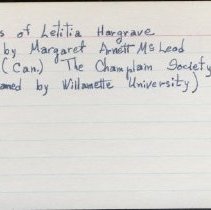 s of Letitia Hargrave
by Margaret Arnett McLeod
(Can.) The Champlain Society
oaned by Willamette University)